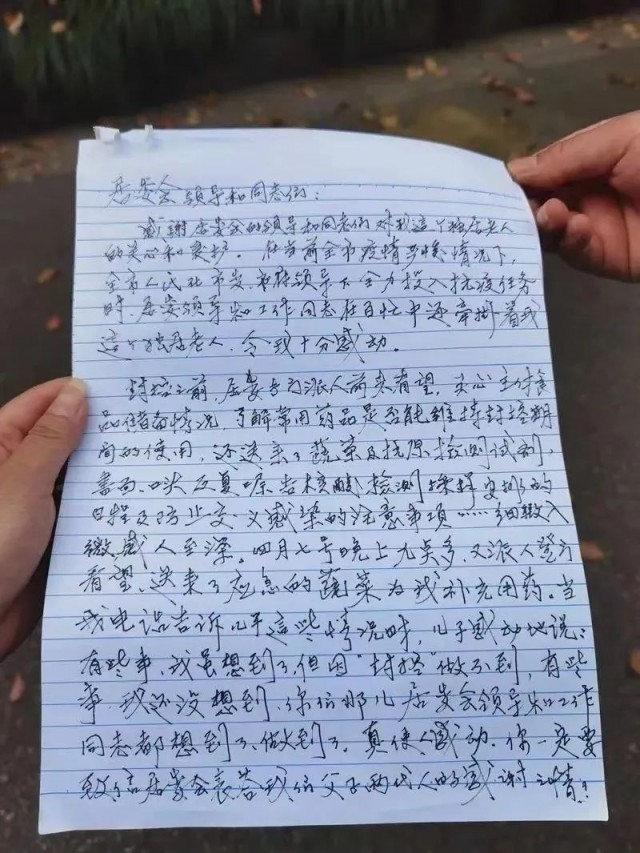 居委会领导和同志们:
感谢居委会的领导和同志们对我这个独居老人
的关心和爱护。在当前全市疫情严峻情况下,
全市人民在市委、市府领导下全力投入抗疫任务
时,居委领导和工作同志在百忙中还牵挂着我
这个独居老人,令我十分感动。
封控之前,居委专门派人前来看望,关心主食
品储备情况,了解常用药品是否能维持封控期
间的使用,还送来了蔬菜及抗原检测试剂,
书面、口头反复嘱告核酸检测、采样安排的
日程及防止交叉感染的注意事项……细微入
微感人至深。四月七号晚上九点多,又派人登门
看望,送来了应急的蔬菜为我补充用药。当
我电话告诉儿子这些情况时,儿子感动地说:
有些事,我虽想到了,但因“封控”做不到,有些
事,我还没想到,你们那儿居委会领导和工作
同志都想到了、做到了。真使人感动。你一定要
致信居委会表答我们父子两代人的感谢之情!